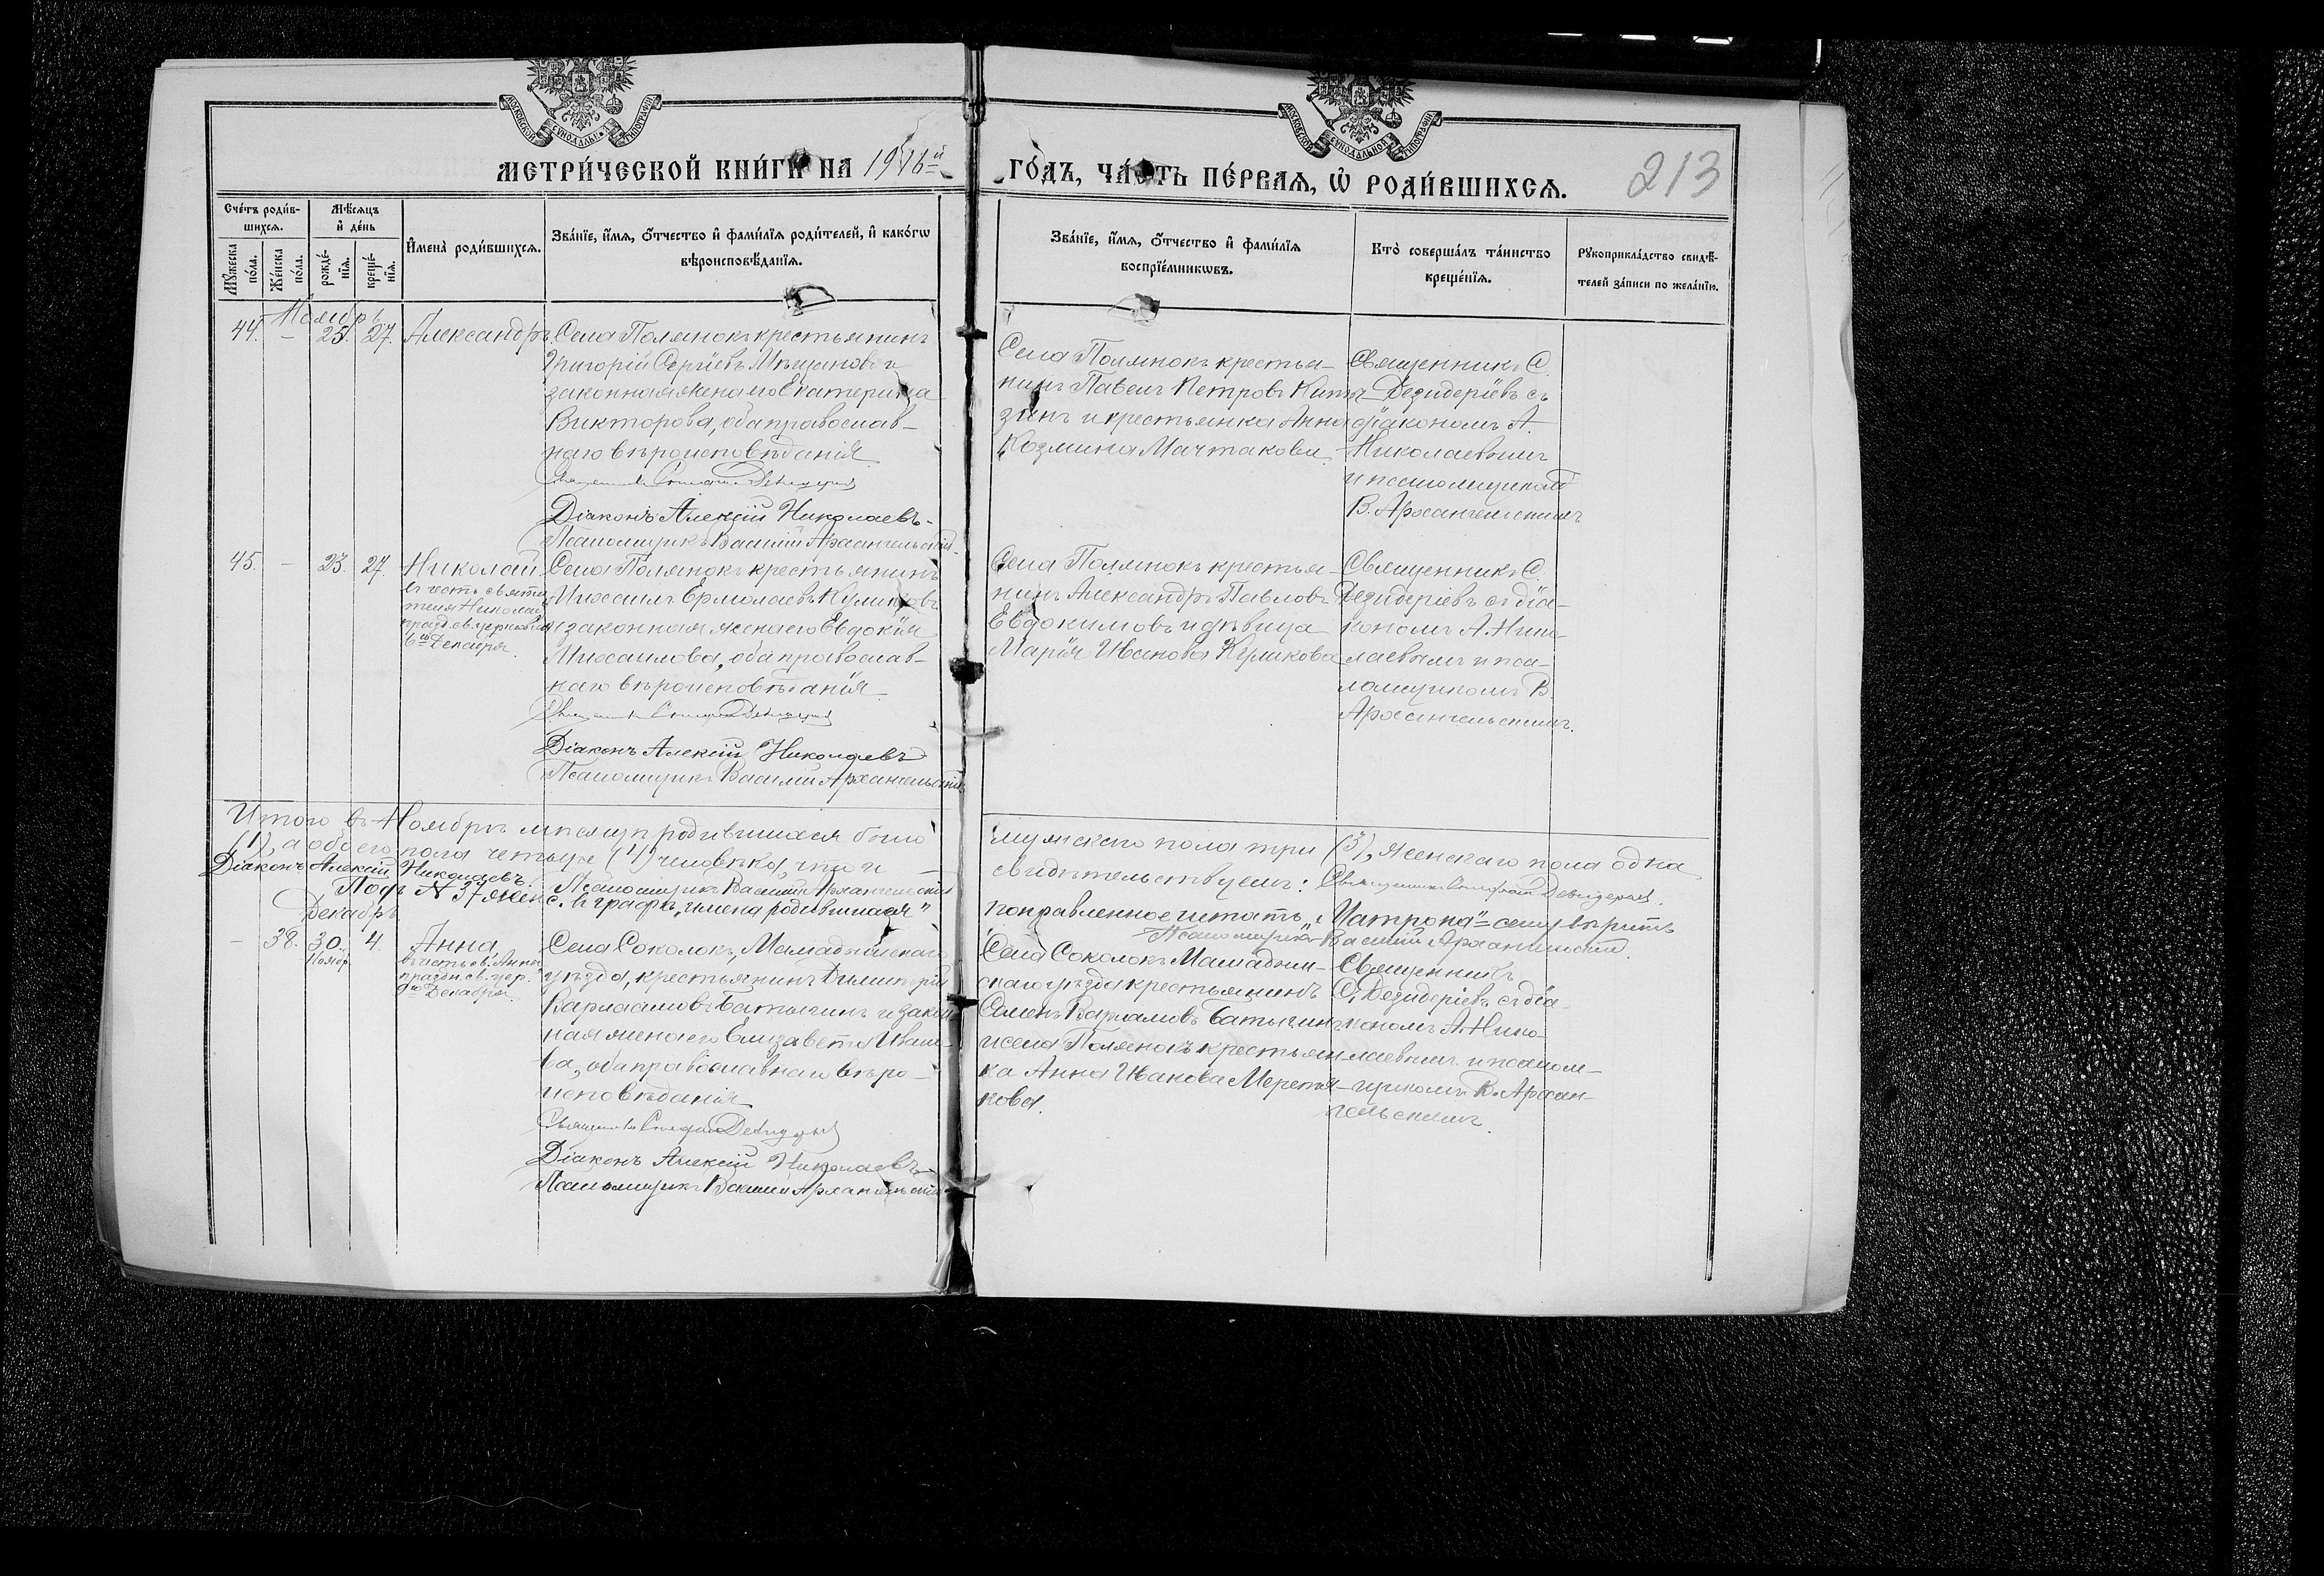 МЕТРИ́ЧЕСКОЙ КНИ́ГИ НА 1916й
ГО́ДЪ, ЧА́СТЬ ПЕ́РВАѦ, Ѡ РОДИ́ВШИХСѦ.
213
Сче́тъ роди́в-
шихсѧ.
Мѣ́сѧцъ
и де́нь
Мꙋ́жеска
по́ла.
Же́нска
по́ла.
рожде́-
нїѧ.
креще́-
нїѧ.
Имена̀ роди́вшихсѧ.
Зва́нїе, и́мѧ, о́тчество и фами́лїѧ роди́телей, и како́гѡ
вѣроисповѣ́данїѧ.
Зва́нїе, и́мѧ, о́тчество и фами́лїѧ
воспрїе́мникѡвъ.
Кто̀ соверша́лъ та́инство
креще́нїѧ.
Рꙋкоприкла́дство свидѣ́-
телей за́писи по жела́нїю.
Ноябрь
44. – 25. 27. Александръ.
Села Полянокъ крестьянинъ
Григорій Сергѣевъ Мѣщановъ и
законная жена его Екатерина
Викторова, оба православ-
наго вѣроисповѣданія
Діаконъ Алексій Николаевъ.
Псаломщикъ Василій Архангельскій
Села Полянокъ крестья-
нинъ Павелъ Петровъ
зинъ и крестьянка Анна
Козмина Мачтакова.
Священникъ С.
Дезидеріевъ съ
діакономъ А.
Николаевымъ
и псаломщикомъ
В. Архангельскимъ
45. – 23. 27. Николай
въ честь святи
теля Николая
празд. св. церковію
6го Декабря.
Села Полянокъ крестьянинъ
Михаилъ Ермолаевъ Куликовъ
и законная жена его Евдокія
Михаилова, оба православ-
наго вѣроисповѣданія
Діаконъ Алексій Николаевъ
Псаломщикъ Василій Архангельскій
Села Полянокъ крестья-
нинъ Александръ Павловъ
Евдокимовъ и дѣвица
Марія Иванова Куликова
Священникъ С.
Дезидеріевъ съ діа-
кономъ А. Нико-
лаевымъ и пса-
ломщикомъ В.
Архангельскимъ.
Итого въ Ноябрѣ мѣсяцѣ родившихся было
мужскаго пола три (3), женскаго пола одна
(1), а обоего пола четыре (4) человѣка, что и
свидѣтельствуемъ: Священникъ Дезидеріевъ.
Діаконъ Алексій Николаевъ.
Псаломщикъ Василій Архангельскій
Подъ № 37 женс. въ графѣ „имена родившихся"
поправленное читать „Матрона" – сему вѣрить
Псаломщикъ Василій Архангельскій.
Декабрь
– 38. 30. 4. Анна
Ноябр.
въ честь св. Анны
праздн. св. цер.
9го Декабря.
Села Соколокъ, Мамадышскаго
уѣзда, крестьянинъ Димитрій
Варлаамовъ Батыгинъ и закон
ная жена его Елизавета Ивано-
ва, оба православнаго вѣро-
исповѣданія
Діаконъ Алексій Николаевъ
Псаломщикъ Василій Архангельскій
Села Соколокъ Мамадыш-
скаго уѣзда крестьянинъ
Семенъ Варламовъ Батыгинъ
и села Полянокъ крестьян-
ка Анна Иванова Меретя-
кова.
Священникъ
С. Дезидеріевъ съ діа-
кономъ А. Нико-
лаевымъ и псалом-
щикомъ В. Архан-
гельскимъ.